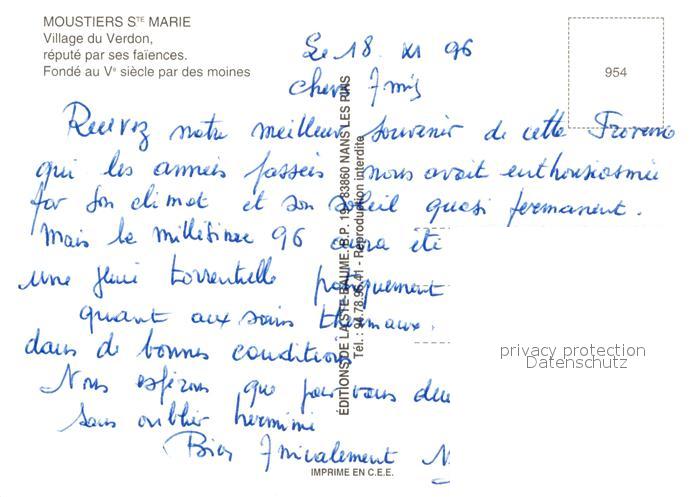 MOUSTIERS STE MARIE
Village du Verdon,
réputé par ses faïences.
Fondé au Ve siècle par des moines
954
Le 18. XI 96
Chers Amis
Recevez notre meilleur souvenir de cette Provence
qui les années passées nous avait enthousiasmée
par son climat et son soleil quasi permanent.
Mais le millésime 96 aura été
une pluie torrentielle pratiquement
quant aux soins thermaux.
dans de bonnes conditions
Nous espérons que pour vous deux
sans oublier herminie
Bien Amicalement
ÉDITIONS DE LA STE-BAUME. B.P. 19 - 83860 NANS LES PINS
Tél.: 94.78.95.41 - Reproduction interdite
privacy protection
Datenschutz
IMPRIMÉ EN C.E.E.